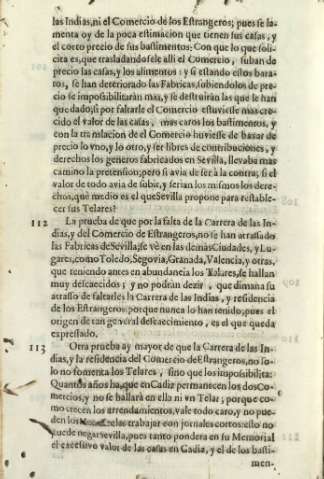 las Indias, ni el Comercio de los Estrangeros; pues se la-
menta oy de la poca estimacion que tienen sus casas, y
el corto precio de sus bastimentos: Con que lo que soli-
cita es, que trasladandose le alli el Comercio, suban de
precio las casas, y los alimentos: y si estando estos bara-
tos, se han deteriorado las Fabricas, subiendolos de pre-
cio se impossibilitaràn mas, y se destruiràn las que le han
quedado; si por faltarle el Comercio estuviesse mas cre-
cido el valor de las casas, mas caros los bastimentos, y
con la translacion de el Comercio huviesse de baxar de
precio lo vno, y lo otro, y ser libres de contribuciones, y
derechos los generos fabricados en Sevilla, llevaba mas
camino la pretension; pero si avia de ser à la contra; si el
valor de todo avia de subir, y serian los mismos los dere-
chos, què medio es el que Sevilla propone para restable-
cer sus Telares?
112 La prueba de que por la falta de la Carrera de las In-
dias, y del Comercio de Estrangeros, no se han atrasado
las Fabricas de Sevilla, se vè en las demàs Ciudades, y Lu-
gares, como Toledo, Segovia, Granada, Valencia, y otras,
que teniendo antes en abundancia los Telares, se hallan
muy descaecidos; y no podràn dezir, que dimana su
atrasso de faltarles la Carrera de las Indias, y residencia
de los Estrangeros: porque nunca lo han tenido; pues el
origen de tan general descaecimiento, es el que queda
expressado.
113 Otra prueba ay mayor de que la Carrera de las In-
dias, y la residencia del Comercio de Estrangeros, no so-
lo no fomenta los Telares, sino que los impossibilita:
Quantos años ha, que en Cadiz permanecen los dos Co-
mercios, y no se hallarà en ella ni vn Telar; porque co-
mo crecen los arrendamientos, vale todo caro, y no pue-
den los telas trabajar con jornales cortos: esto no
puede negar Sevilla, pues tanto pondera en su Memorial
el excessivo valor de las casas en Cadiz, y el de los basti-
men-